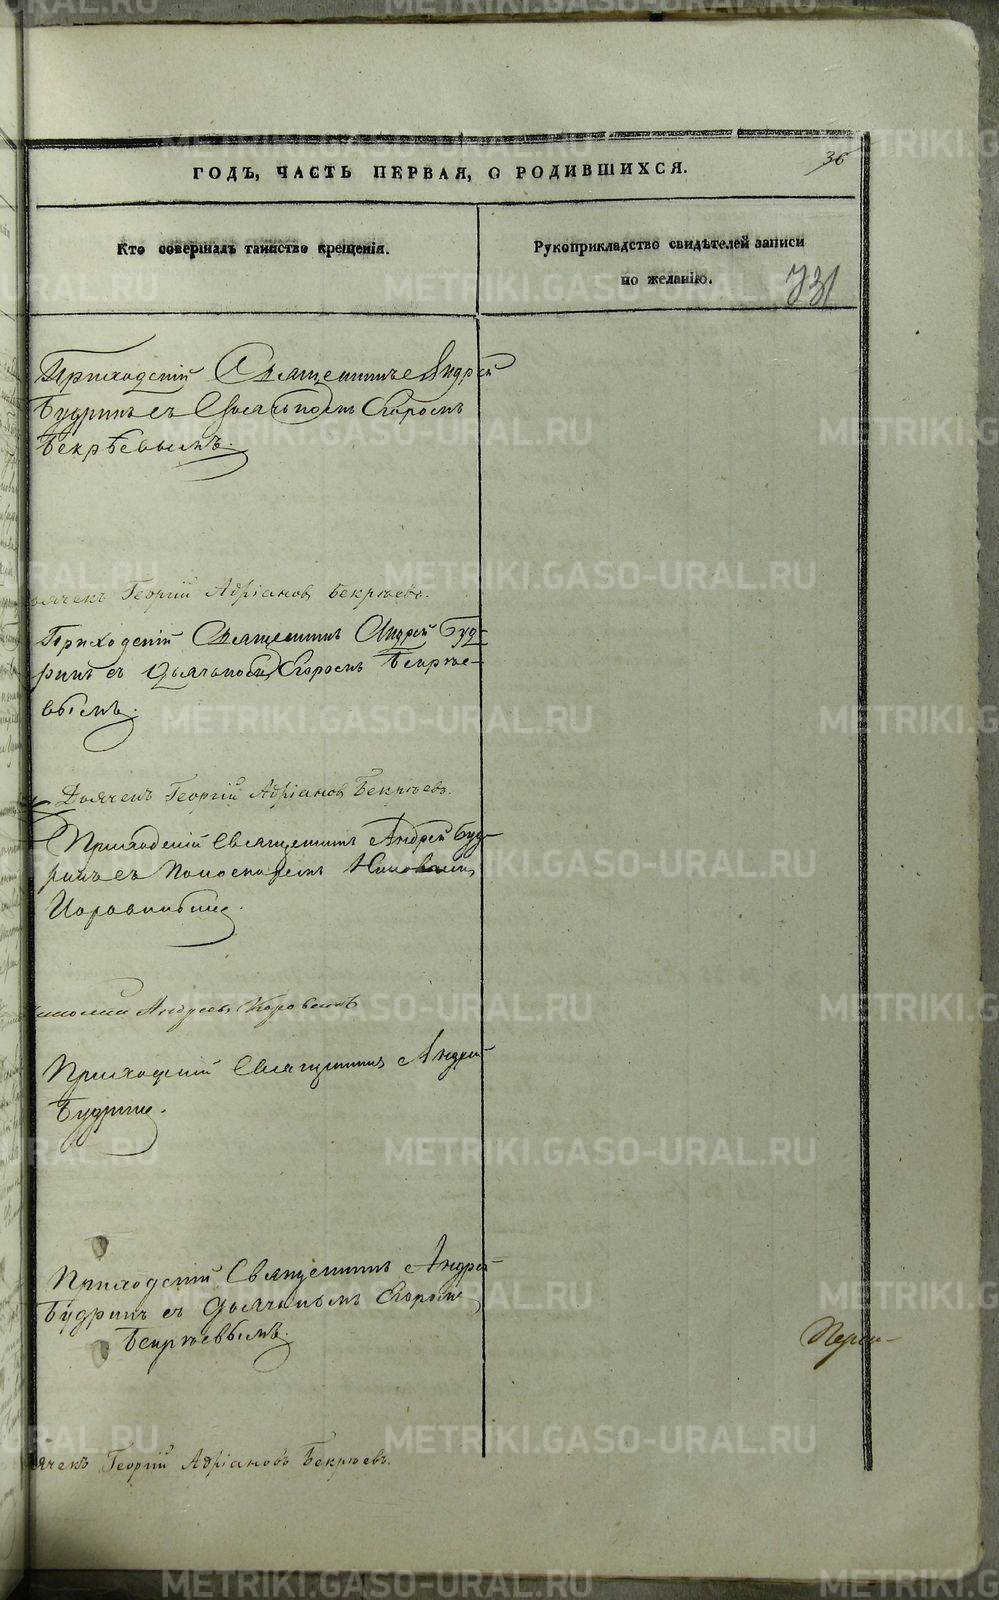 36
ГОДЪ, ЧАСТЬ ПЕРВАЯ, О РОДИВШИХСЯ.
Кто совершалъ таинство крещенія.
Рукоприкладство свидѣтелей записи
по желанію.
731
Приходскій Священникъ Андрей
Будринъ съ Дьячькомъ Егоромъ
Бекрѣевымъ.
Дьячекъ Георгій Адріановъ Бекрюевъ.
Приходскій Священникъ Андрей Буд-
ринъ съ Дьячькомъ Егоромъ Бекрюе-
вымъ.
Дьячекъ Георгій Адріановъ Бекрюевъ.
Приходскій Священникъ Андрей Буд-
ринъ съ Пономаремъ
Андреевъ Коровинъ
Приходскій Священникъ Андрей
Будринъ.
Приходскій Священникъ Андрей
Будринъ съ Дьячькомъ Егоромъ
Бекрюевымъ.
ячекъ Георгій Адріановъ Бекрюевъ.
METRIKI.GASO-URAL.RU